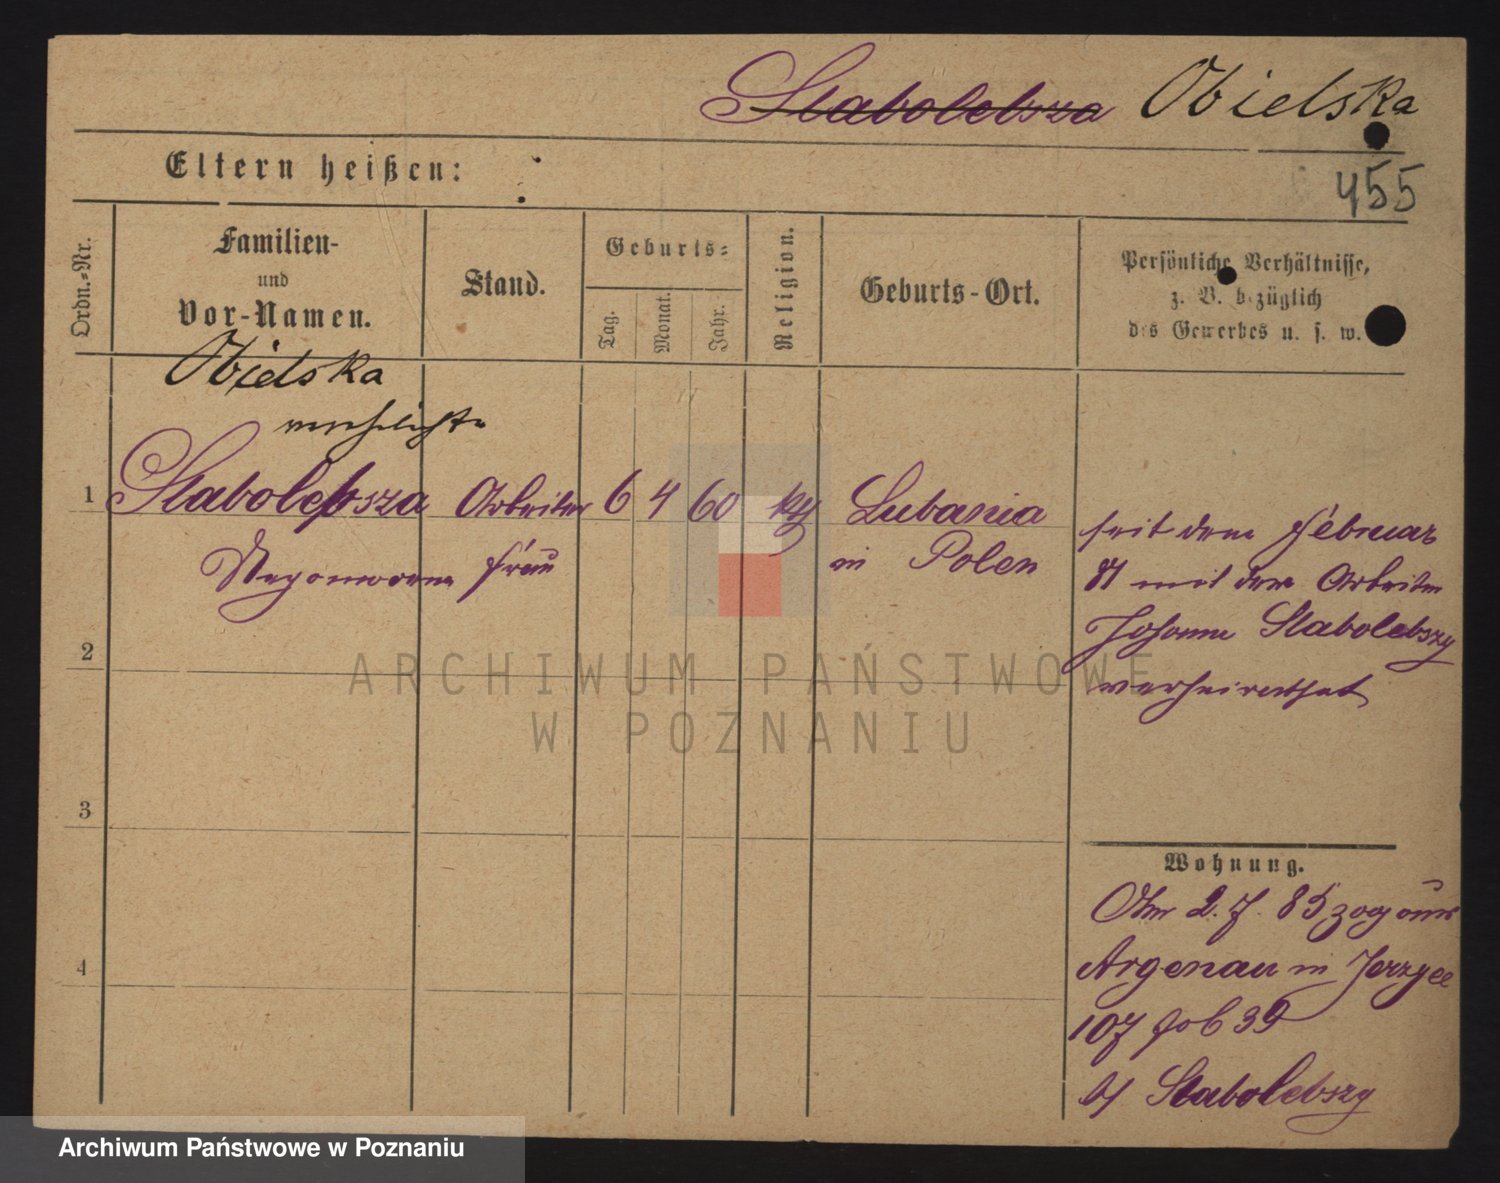 Slabolebsza Obielska
455
Eltern heißen:
Ordn.-Nr.
Familien-
und
Vor-Namen.
Stand.
Geburts-
Tag.
Monat.
Jahr.
Religion.
Geburts-Ort.
Persönliche Verhältnisse,
z. B. bezüglich
des Gewerbes u. s. w.
Obielska
verehelichte
1 Slabolebsza Arbeiter 6 4 60 kth Lubania
frau in Polen
seit dem Februar
81 mit dem Arbeiter
Johann Slabolebszy
verheirathet
2
3
4
Wohnung.
Am 2. 7. 85 zog aus
Argenau in Jerzyce
107 39
b/ Slabolebszy
ARCHIWUM PAŃSTWOWE
W POZNANIU
Archiwum Państwowe w Poznaniu